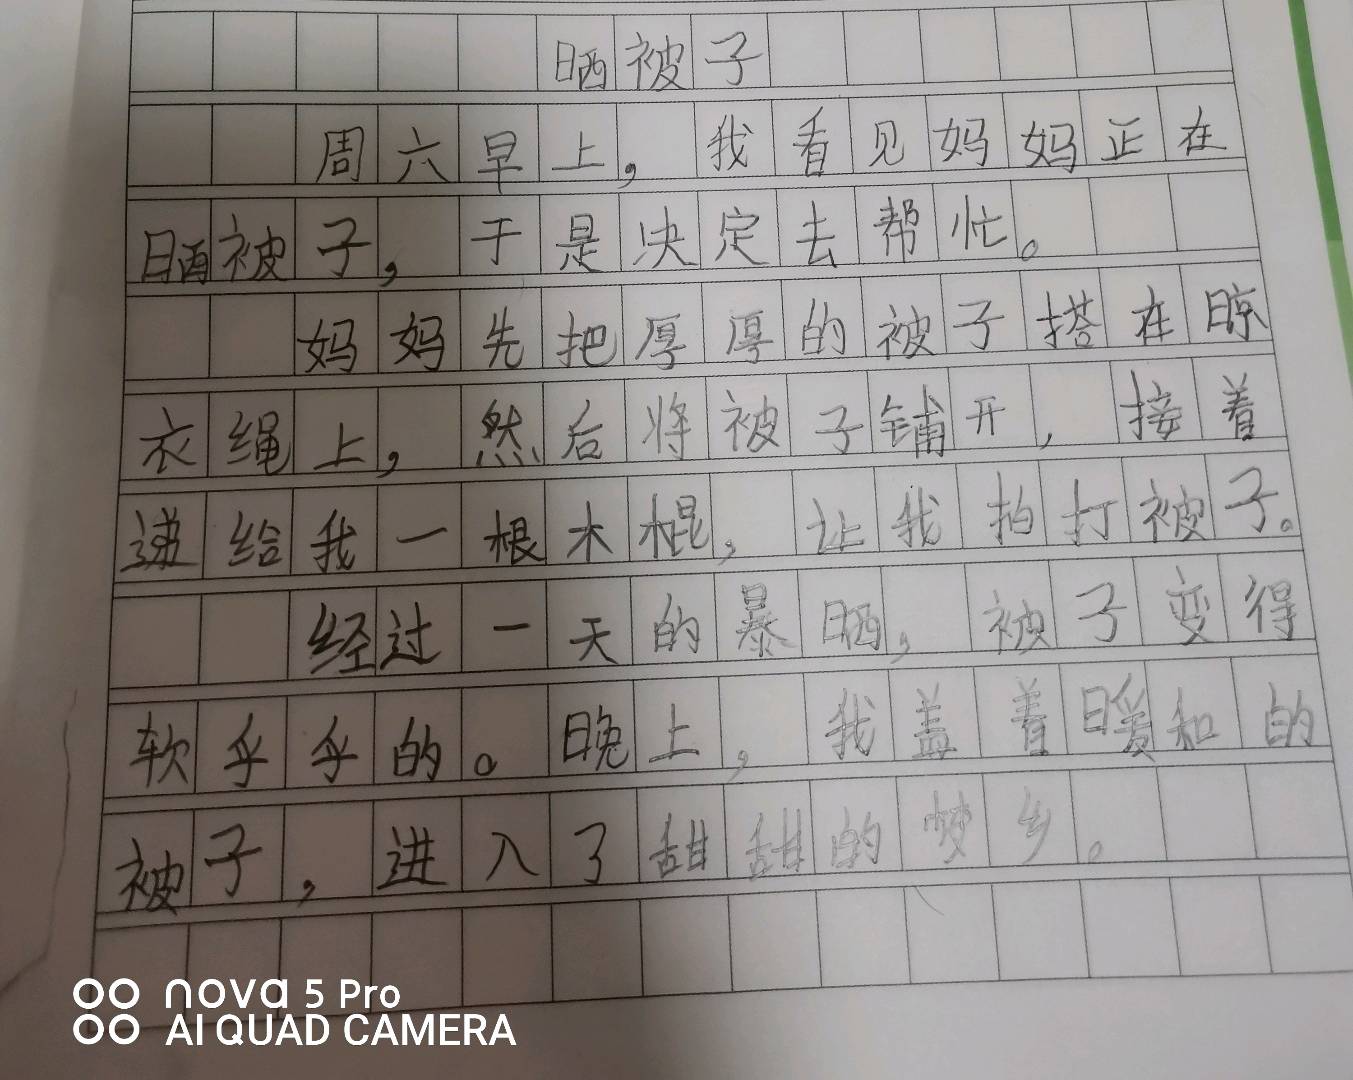 晒被子
周六早上，我看见妈妈正在
晒被子，于是决定去帮忙。
妈妈先把厚厚的被子搭在晾
衣绳上，然后将被子铺开，接着
递给我一根木棍，让我拍打被子。
经过一天的暴晒，被子变得
软乎乎的。晚上，我盖着暖和的
被子，进入了甜甜的梦乡。
nova 5 Pro
AI QUAD CAMERA